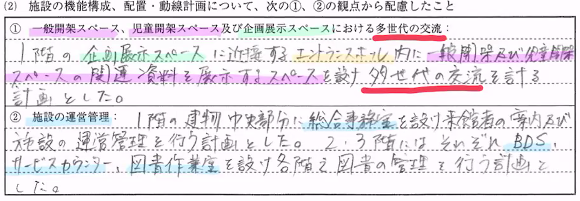 (2) 施設の機能構成、配置・動線計画について、次の①、②の観点から配慮したこと
① 一般開架スペース、児童開架スペース及び企画展示スペースにおける多世代の交流：
1階の企画展示スペースに近接するエントランスホール内に一般開架及び児童開架
スペースの関連資料を展示するスペースを設け多世代の交流を計る
計画とした。
② 施設の運営管理： 1階の建物中央部分に総合事務室を設け来館者の案内及び
施設の運営管理を行う計画とした。2、3階にはそれぞれBDS、
サービスカウンター、図書作業室を設け各階で図書の管理を行う計画と
した。